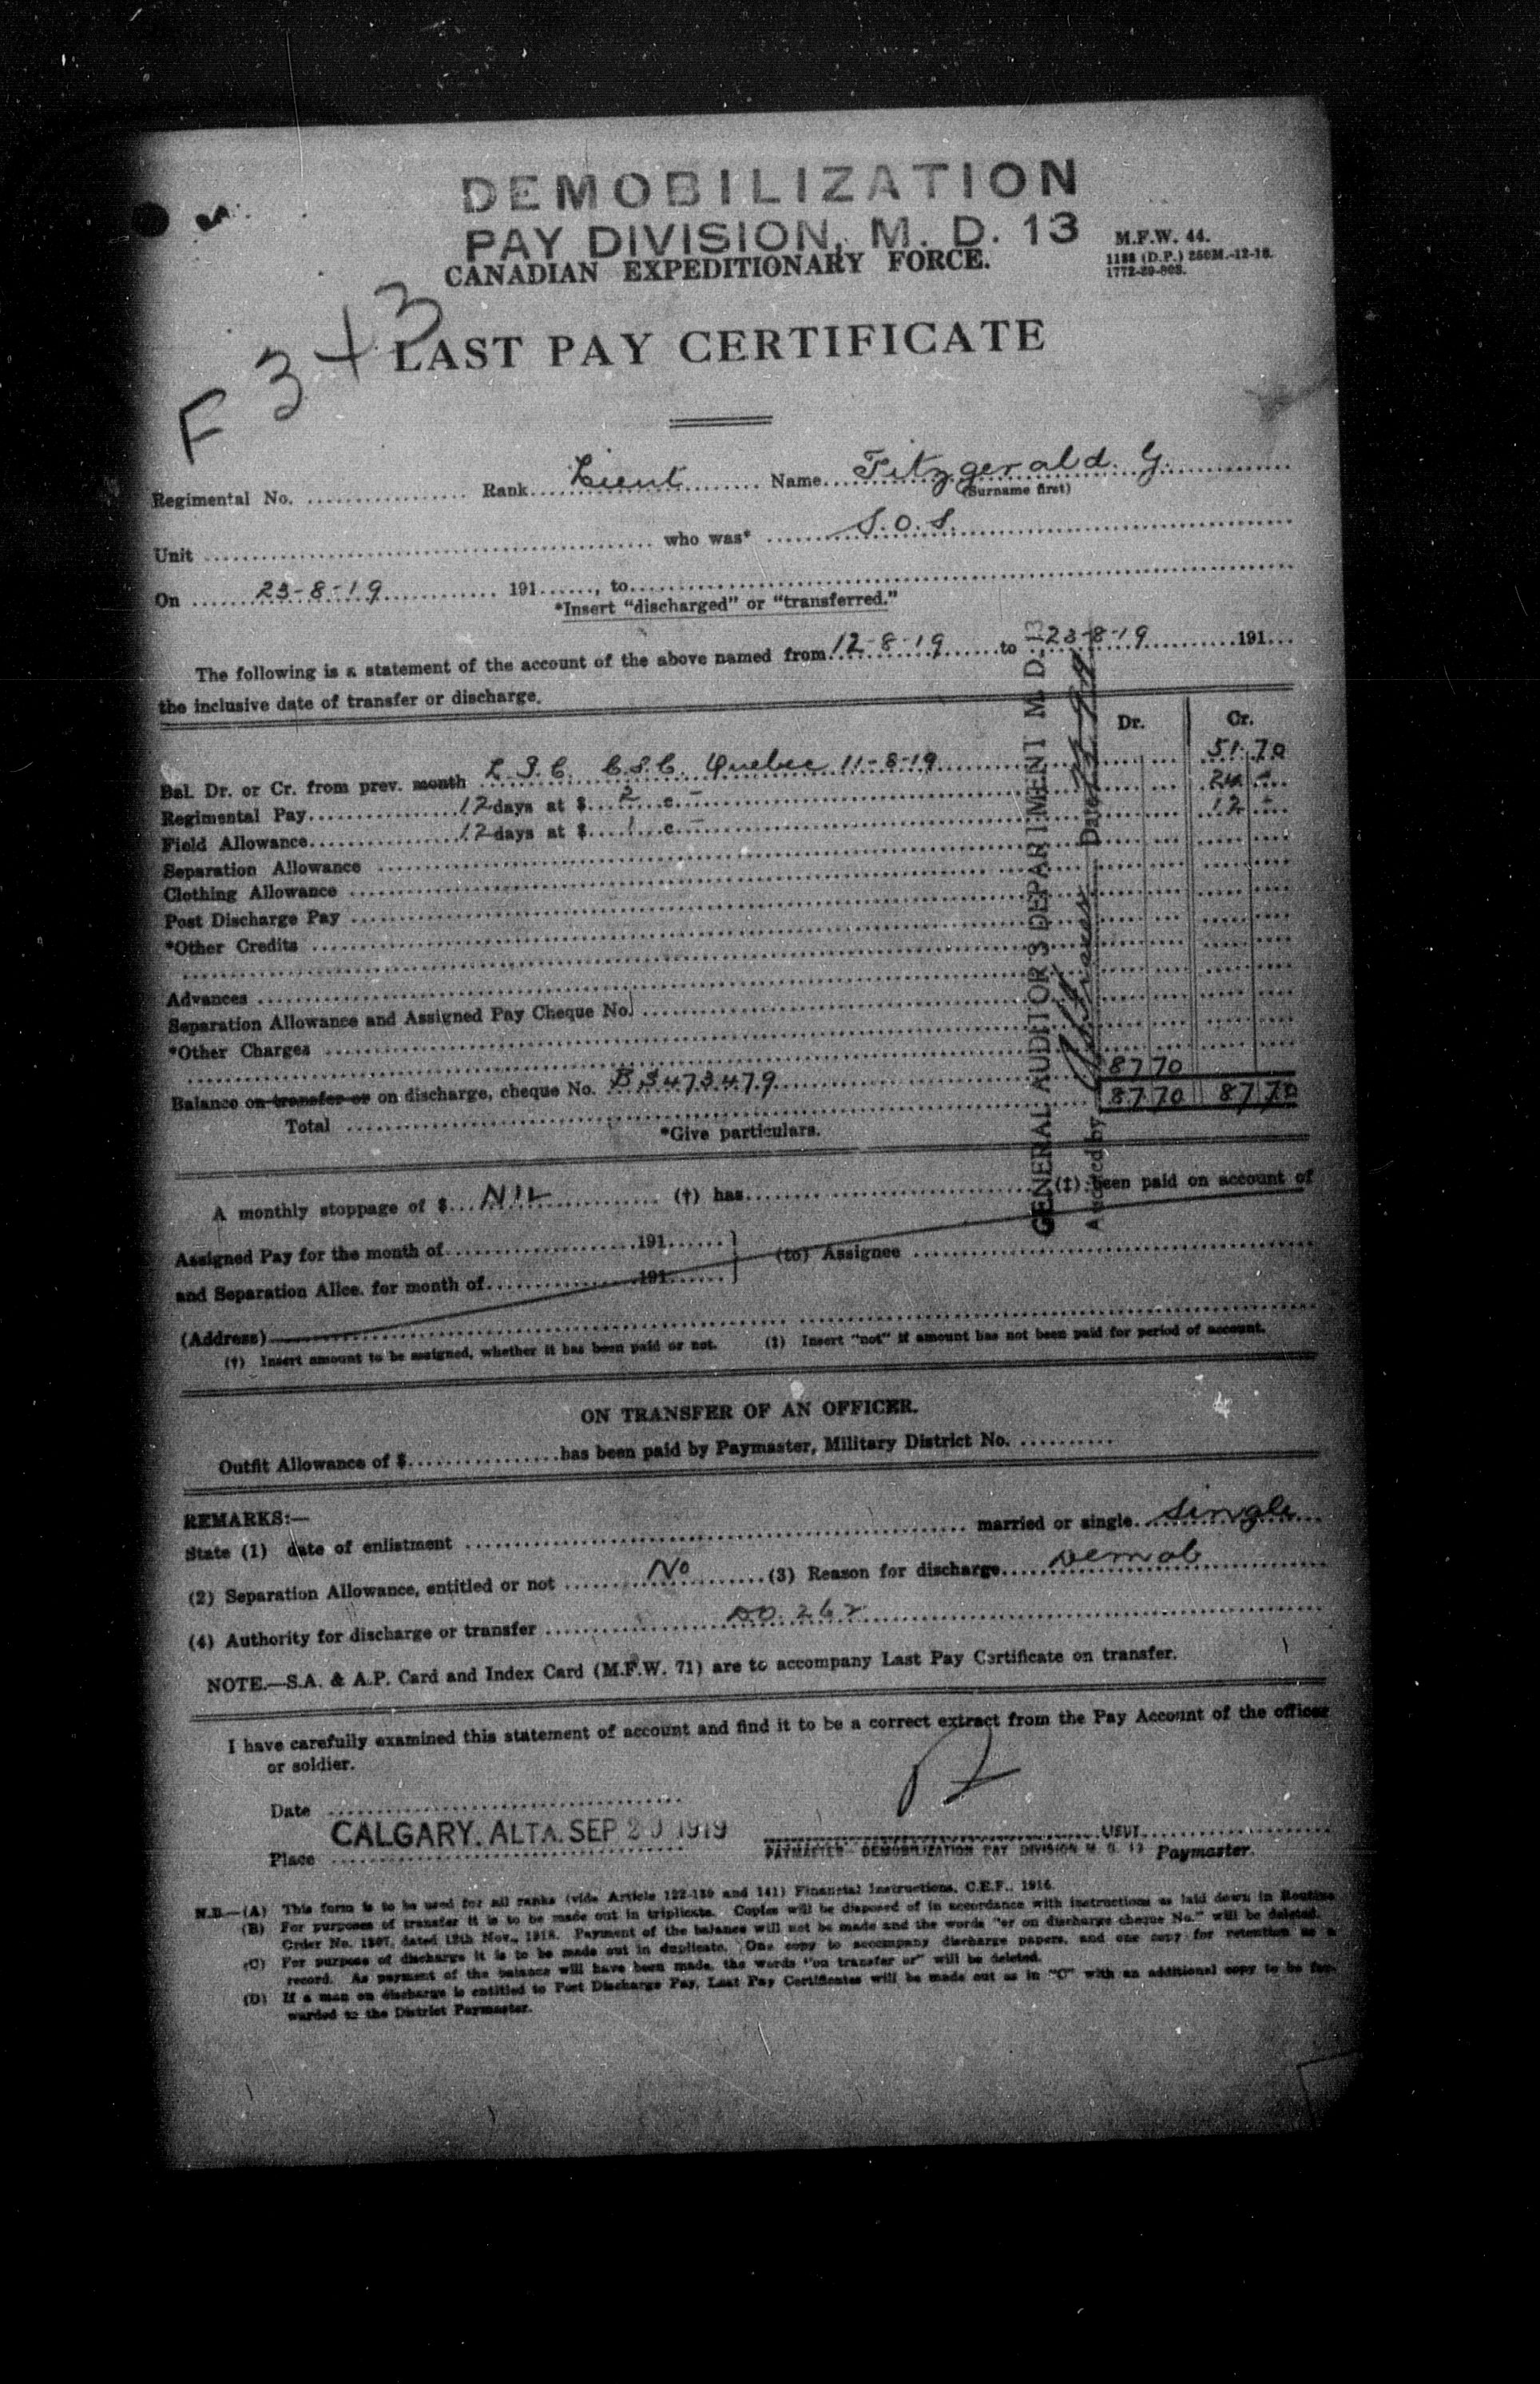 DEMOBILIZATION
PAY DIVISION, M. D. 13
CANADIAN EXPEDITIONARY FORCE.
M.F.W. 44.
1772-39-803.
F 343
LAST PAY CERTIFICATE
Regimental No. Rank Lieut Name Fitzgerald. G.
(Surname first)
Unit who was* S.O.S.
On 23-8-19 191......, to
*Insert "discharged" or "transferred."
The following is a statement of the account of the above named from 12-8-19 to 23-8-19 191...
the inclusive date of transfer or discharge.
Dr. Cr.
Bal. Dr. or Cr. from prev. month L.P.C. C.S.C. Quebec 11-8-19 51.70
Regimental Pay 12 days at $ 2 c. - 24 -
Field Allowance 12 days at $ 1 c. - 12 -
Separation Allowance
Clothing Allowance
Post Discharge Pay
*Other Credits
Advances
Separation Allowance and Assigned Pay Cheque No.
*Other Charges
Balance on transfer or on discharge, cheque No. B3473479 87 70
Total 87 70 87 70
*Give particulars.
GENERAL AUDITOR'S DEPARTMENT M. D. 13
Audited by Date
A monthly stoppage of $ NIL (†) has (‡) been paid on account of
Assigned Pay for the month of 191......
(to) Assignee
and Separation Allce. for month of 191......
(Address)
(†) Insert amount to be assigned, whether it has been paid or not. (‡) Insert "not" if amount has not been paid for period of account.
ON TRANSFER OF AN OFFICER.
Outfit Allowance of $ has been paid by Paymaster, Military District No.
REMARKS:—
State (1) date of enlistment married or single. Single
(2) Separation Allowance, entitled or not No (3) Reason for discharge Demob
(4) Authority for discharge or transfer DO. 262
NOTE.—S.A. & A.P. Card and Index Card (M.F.W. 71) are to accompany Last Pay Certificate on transfer.
I have carefully examined this statement of account and find it to be a correct extract from the Pay Account of the officer
or soldier.
Date
CALGARY, ALTA. SEP 20 1919
LIEUT.
Place
PAYMASTER DEMOBILIZATION PAY DIVISION M. D. 13 Paymaster.
N.B.—(A) This form is to be used for all ranks (vide Article 122-139 and 141) Financial Instructions, C.E.F., 1916.
(B) For purposes of transfer it is to be made out in triplicate. Copies will be disposed of in accordance with instructions as laid down in Routine
Order No. 1307, dated 12th Nov., 1918. Payment of the balance will not be made and the words "or on discharge cheque No." will be deleted.
(C) For purpose of discharge it is to be made out in duplicate. One copy to accompany discharge papers, and one copy for retention as a
record. As payment of the balance will have been made, the words "on transfer or" will be deleted.
(D) If a man on discharge is entitled to Post Discharge Pay, Last Pay Certificates will be made out as in "C" with an additional copy to be for-
warded to the District Paymaster.